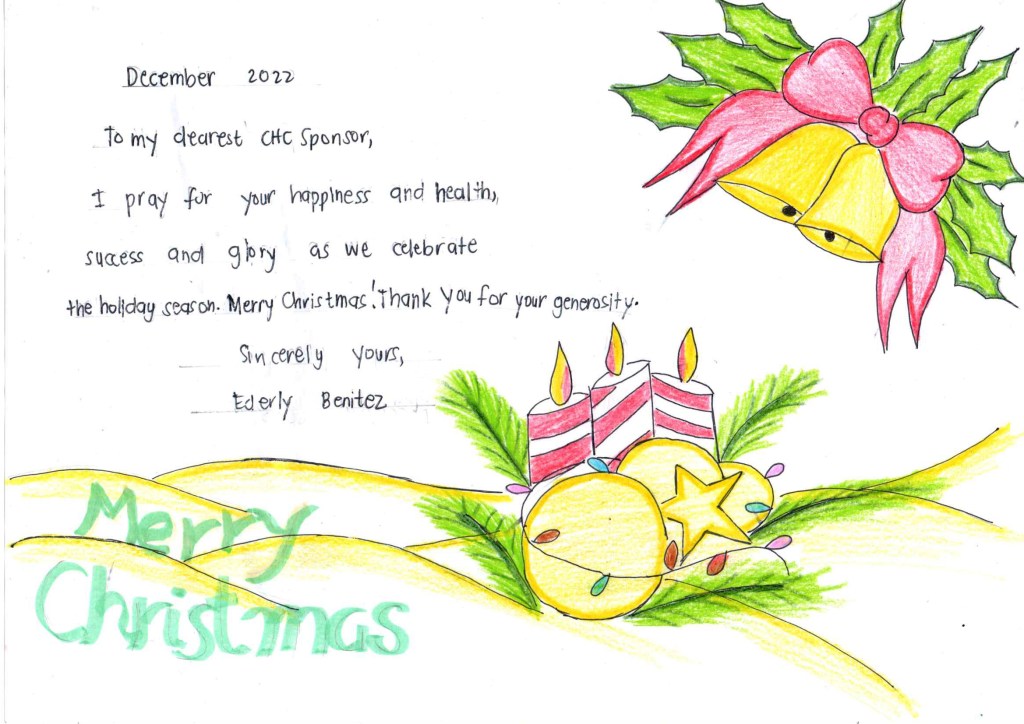 December 2022
To my dearest CHC Sponsor,
I pray for your happiness and health,
success and glory as we celebrate
the holiday season. Merry Christmas! Thank you for your generosity.
Sincerely yours,
Ederly Benitez
Merry
Christmas